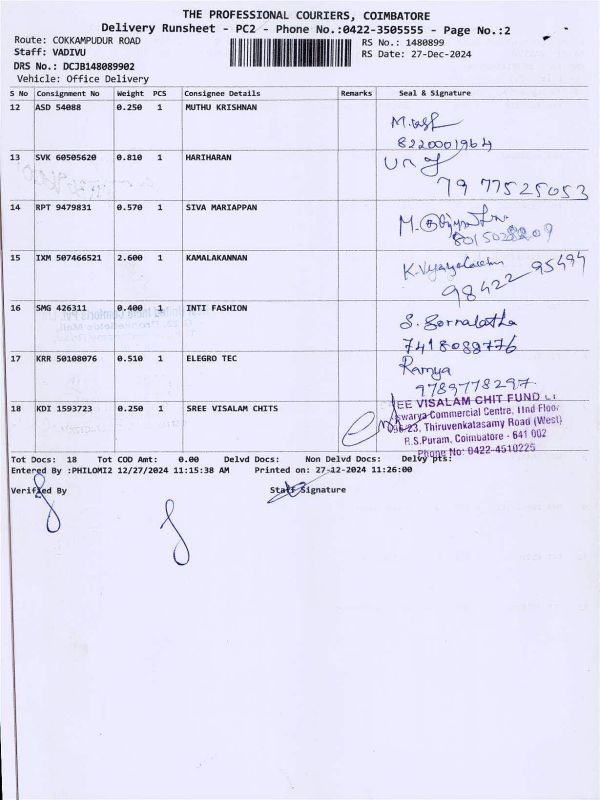 THE PROFESSIONAL COURIERS, COIMBATORE
Delivery Runsheet - PC2 - Phone No.:0422-3505555 - Page No.:2
Route: COKKAMPUDUR ROAD
RS No.: 1480899
Staff: VADIVU
RS Date: 27-Dec-2024
DRS No.: DCJB148089902
Vehicle: Office Delivery
S No Consignment No Weight PCS Consignee Details Remarks Seal & Signature
12 ASD 54088 0.250 1 MUTHU KRISHNAN
8220001964
13 SVK 60505620 0.810 1 HARIHARAN
79 77525053
14 RPT 9479831 0.570 1 SIVA MARIAPPAN
M.
15 IXM 507466521 2.600 1 KAMALAKANNAN
K.Vijayalakshmi
98422 95494
16 SMG 426311 0.400 1 INTI FASHION
S. Sornalatha
7418089776
17 KRR 50108076 0.510 1 ELEGRO TEC
Ramya
9789778297
18 KDI 1593723 0.250 1 SREE VISALAM CHITS
EE VISALAM CHIT FUND
swarya Commercial Centre, IInd Floor
23, Thiruvenkatasamy Road (West)
R.S.Puram, Coimbatore - 641 002
Phone No: 0422-4510225
Tot Docs: 18 Tot COD Amt: 0.00 Delvd Docs: Non Delvd Docs: Delvy pts:
Entered By :PHILOMI2 12/27/2024 11:15:38 AM Printed on: 27-12-2024 11:26:00
Verified By
Staff Signature